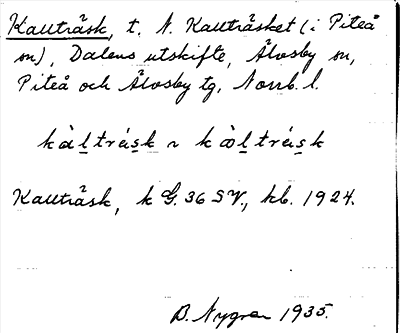 Kallträsk, t. N. Kallträsket (i Piteå
sn), Dalens utskifte, Älvsby sn,
Piteå och Älvsby tg, Norrb. l.
kàltrésk ~ kòltrésk
Kallträsk, k G. 36 SV., kb. 1924.
B. Nygren 1935.